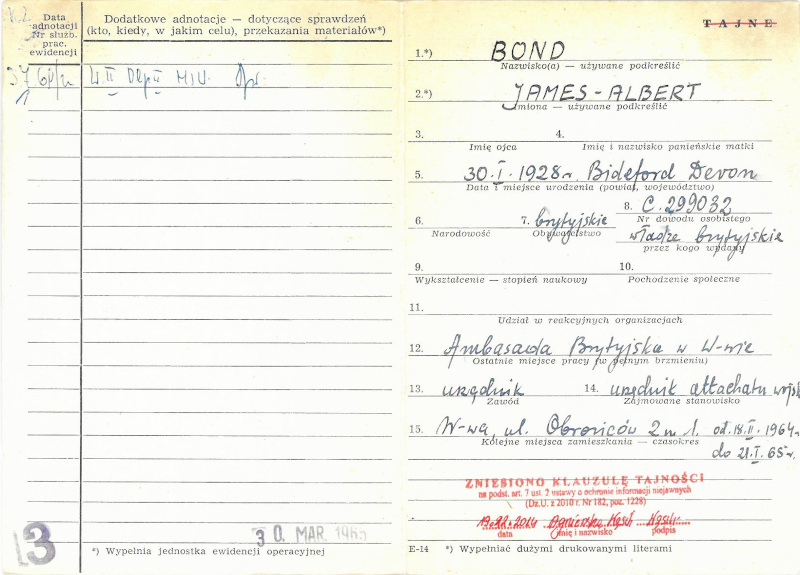 Data
adnotacji
Nr służb.
prac.
ewidencji
Dodatkowe adnotacje — dotyczące sprawdzeń
(kto, kiedy, w jakim celu), przekazania materiałów*)
3
30. MAR. 1965
*) Wypełnia jednostka ewidencji operacyjnej
TAJNE
1.*) BOND
Nazwisko(a) — używane podkreślić
2.*) JAMES-ALBERT
Imiona — używane podkreślić
3. 4.
Imię ojca Imię i nazwisko panieńskie matki
5. 30.I.1928r. Bideford Devon
Data i miejsce urodzenia (powiat, województwo)
6. 7. brytyjskie 8. C.299032
Narodowość Obywatelstwo Nr dowodu osobistego
władze brytyjskie
przez kogo wydany
9. 10.
Wykształcenie — stopień naukowy Pochodzenie społeczne
11.
Udział w reakcyjnych organizacjach
12. Ambasada Brytyjska w W-wie
Ostatnie miejsce pracy (w pełnym brzmieniu)
13. urzędnik 14. urzędnik attachatu wojsk
Zawód Zajmowane stanowisko
15. W-wa, ul. Obrońców 2 m 1. od.18.II.1964r
Kolejne miejsca zamieszkania — czasokres
do 21.I.65r.
ZNIESIONO KLAUZULĘ TAJNOŚCI
na podst. art. 7 ust. 2 ustawy o ochronie informacji niejawnych
(Dz.U. z 2010 r. Nr 182, poz. 1228)
data imię i nazwisko podpis
E-14 *) Wypełniać dużymi drukowanymi literami